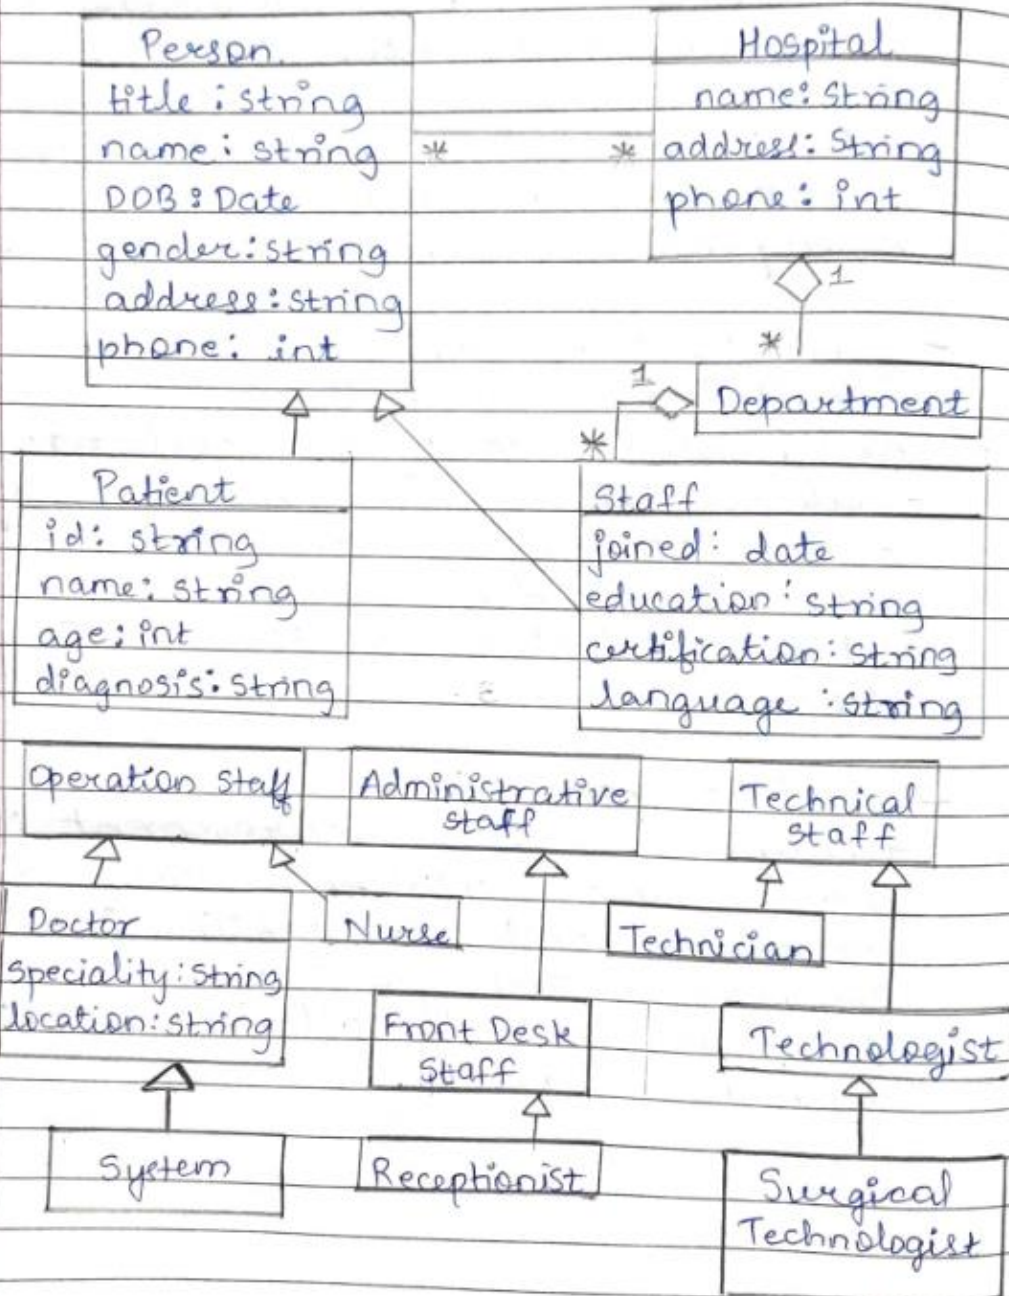 Person
title : string
name : string
DOB : Date
gender : string
address : string
phone : int
*
*
Hospital
name : String
address : String
phone : int
1
*
Department
1
*
Patient
id : string
name : string
age : int
diagnosis : string
Staff
joined : date
education : string
certification : string
language : string
Operation Staff
Administrative
staff
Technical
staff
Doctor
speciality : String
location : string
Nurse
Technician
Front Desk
Staff
Technologist
System
Receptionist
Surgical
Technologist